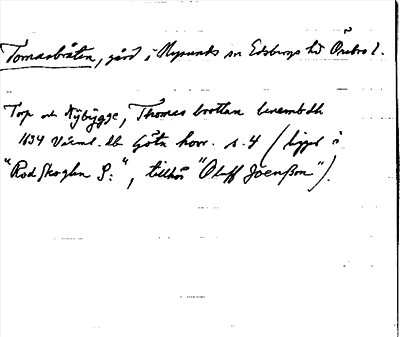 Tomasbråten, gård i Nysunds sn Edsbergs hd Örebro l.
Torp och Nÿbÿgge, Thomas brottan benembdh
1634 Värml. lb Götn hovr. s. 4 (ligger i
"Rod skoghn S:", tillhör "Oluff Joenßon").